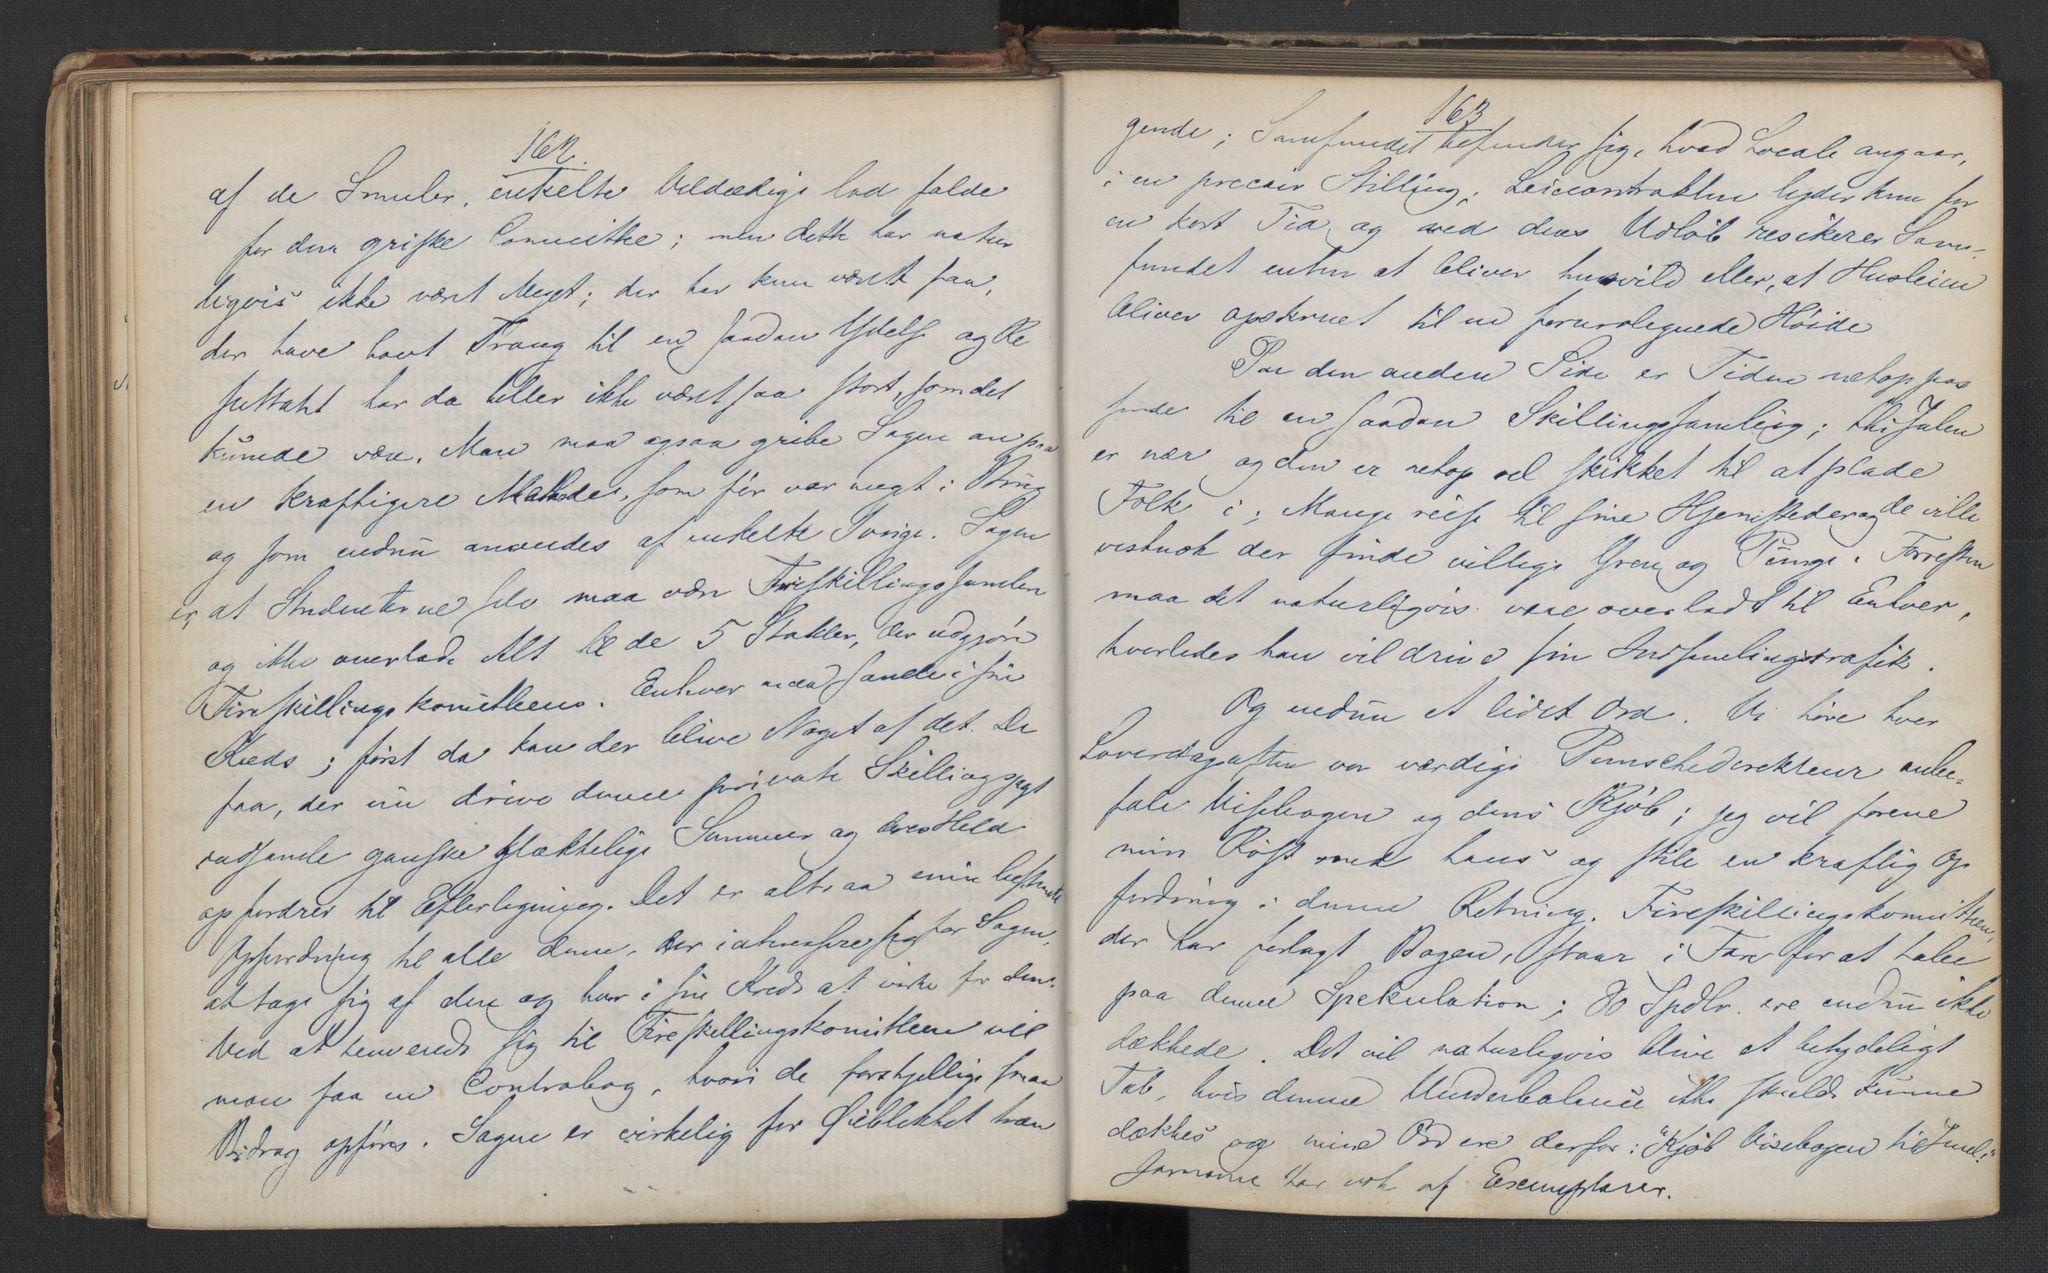 162.
af de Smuler, enkelte Veldædige lod falde
for den griske Comitthe; men dette har natur
ligvis ikke været Meget; der har kun været faa,
der have havt Trang til en saadan Ydelse og Re
sultatet har da heller ikke været saa stort, som det
kunde være. Man maa ogsaa gribe Sagen an paa
en kraftigere Maade, som før var meget i Brug
og som endnu anvendes af enkelte Ivrige. Sagen
er, at Studenterne selv maa være Fireskillingssamlere
og ikke overlade Alt til de 5 Stakler, der udgjøre
Fireskillingskomitheen. Enhver maa samle i sin
Kreds; først da kan der blive Noget af det. De
faa, der nu drive denne private Skillingsjagt
indsamle ganske klækkelige Summer og deres Held
opfordrer til Efterligning. Det er altsaa min bestemte
Opfordring til alle dem, der interessere sig for Sagen,
at tage sig af den og hver i sin Kreds at virke for den.
Ved at henvende sig til Fireskillingskomitheen vil
man faa en Contrabog, hvori de forskjellige smaa
Bidrag opføres. Sagen er virkelig for Øieblikket træn
163
gende; Samfundet befinder sig, hvad Locale angaar,
i en precair Stilling; Leiecontrakten lyder kun for
en kort Tid og med dens Udløb risikerer Sam-
fundet enten at bliver husvild eller, at Husleien
bliver opskruet til en forurolignede Høide
Paa den anden Side er Tiden netop pas
sende til en saadan Skillingssamling; thi Julen
er nær og den er netop vel skikket til at plage
Folk i; Mange reise til sine Hjemsteder og de ville
vistnok der finde villige Øren og Punge. Forresten
maa det naturligvis være overladt til Enhver,
hvorledes han vil drive sin Indsamlingstrafik.
Og endnu et lidet Ord. Vi høre hver
Loverdagsaften vor værdige Punschedirekteur anbe-
fale Visebogen og dens Kjøb; jeg vil forene
min Røst med hans og stile en kraftig Op
fordring i denne Retning. Fireskillingskomitheen,
der har forlagt Bogen, staar i Fare for at tabe
paa denne Spekulation; 80 Spdlr. ere endnu ikke
dækkede. Det vil naturligvis blive et betydeligt
Tab, hvis denne Underbalance ikke skulde kunne
dækkes og mine Ord ere derfor: "Kjøb Visebogen til Jul!"
har nok af Exemplarer.